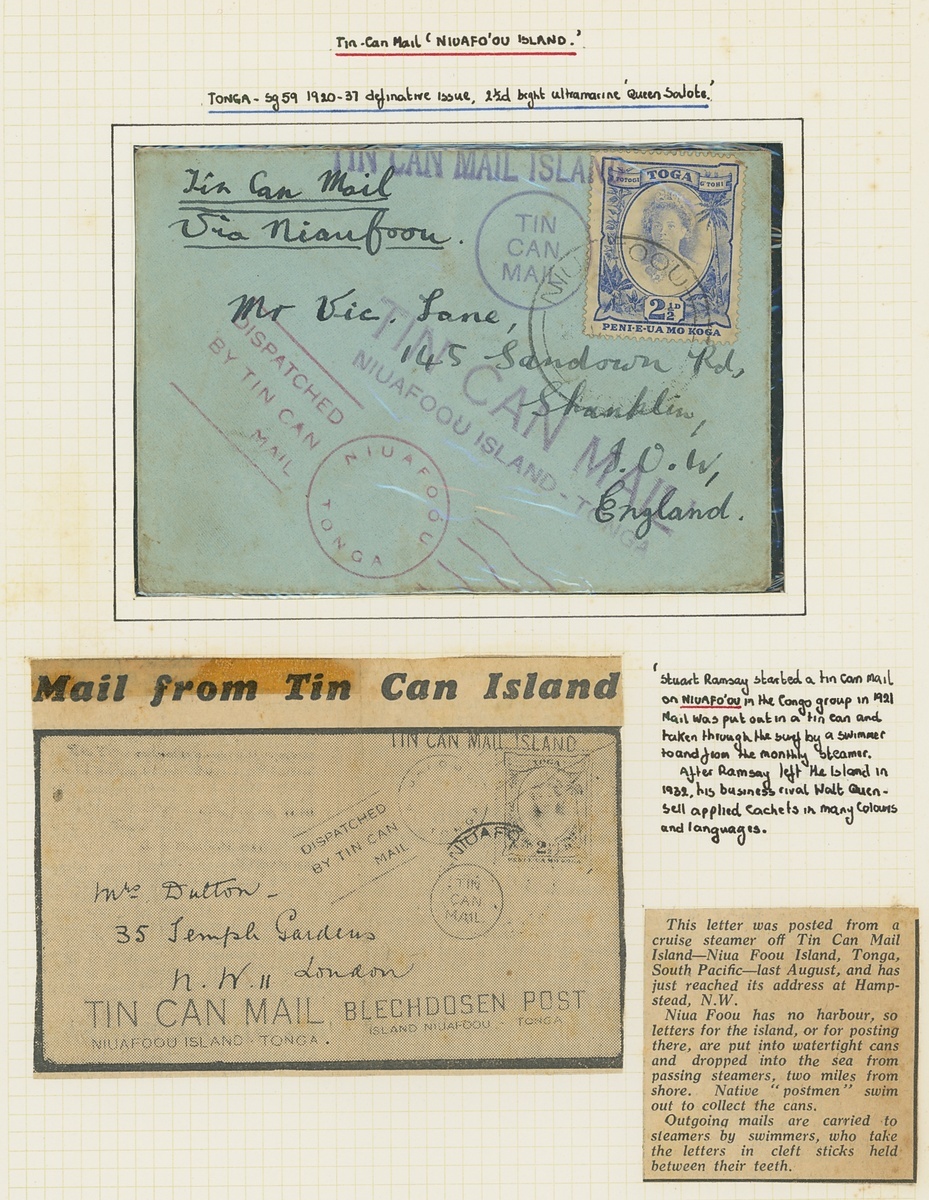 Tin-Can Mail 'NIUAFO'OU ISLAND.'
TONGA - Sg 59 1920-37 definative issue, 2½d bright ultramarine 'Queen Salote.'
TIN CAN MAIL ISLAND
Tin Can Mail
Via Niaufoou.
TIN
CAN
MAIL
TOGA
2½D
PENI·E·UA MO KOGA
NIUAFOOU
Mr Vic. Lane,
145 Sandown Rd,
Shanklin,
I.O.W,
England.
DISPATCHED
BY TIN CAN
MAIL
TIN CAN MAIL
NIUAFOOU ISLAND - TONGA
NIUAFOOU
TONGA
Mail from Tin Can Island
TIN CAN MAIL ISLAND
TOGA
2½
PENI·E·UA MO KOGA
DISPATCHED
BY TIN CAN
MAIL
TONGA
NIUAFO
TIN
CAN
MAIL
Mrs Dutton -
35 Templ Gardens
N.W. 11 London
TIN CAN MAIL
NIUAFOOU ISLAND - TONGA.
BLECHDOSEN POST
ISLAND NIUAFOOU - TONGA
'Stuart Ramsay started a tin can Mail
on NIUAFO'OU in the Congo group in 1921
Mail was put out in a tin can and
taken through the surf by a swimmer
to and from the monthly steamer.
After Ramsay left the Island in
1932, his business rival Walt Quen-
sell applied Cachets in many Colours
and languages.
This letter was posted from a
cruise steamer off Tin Can Mail
Island—Niua Foou Island, Tonga,
South Pacific—last August, and has
just reached its address at Hamp-
stead, N.W.
Niua Foou has no harbour, so
letters for the island, or for posting
there, are put into watertight cans
and dropped into the sea from
passing steamers, two miles from
shore. Native "postmen" swim
out to collect the cans.
Outgoing mails are carried to
steamers by swimmers, who take
the letters in cleft sticks held
between their teeth.